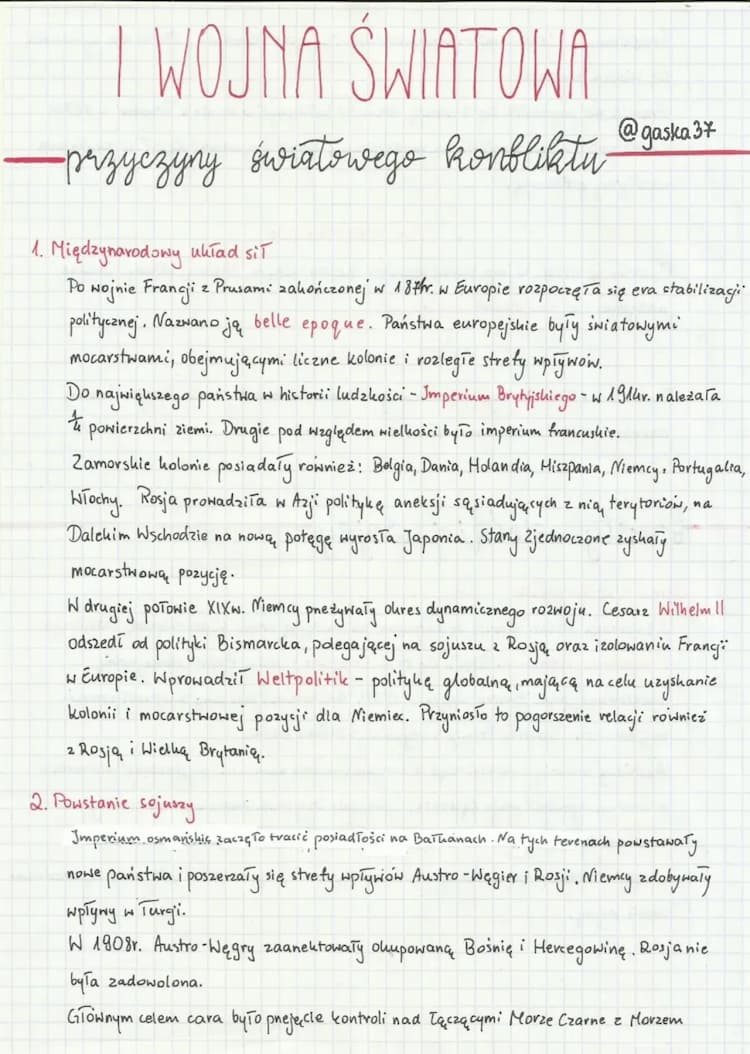 I WOJNA ŚWIATOWA
@gaska37
przyczyny światowego konfliktu
1. Międzynarodowy układ sił
Po wojnie Francji z Prusami zakończonej w 1871r. w Europie rozpoczęła się era stabilizacji
politycznej. Nazwano ją belle epoque. Państwa europejskie były światowymi
mocarstwami, obejmującymi liczne kolonie i rozległe strefy wpływów.
Do największego państwa w historii ludzkości - Imperium Brytyjskiego - w 1914r. należała
1/4 powierzchni ziemi. Drugie pod względem wielkości było imperium francuskie.
Zamorskie kolonie posiadały również: Belgia, Dania, Holandia, Hiszpania, Niemcy, Portugalia,
Włochy. Rosja prowadziła w Azji politykę aneksji sąsiadujących z nią terytoriów, na
Dalekim Wschodzie na nową potęgę wyrosła Japonia. Stany Zjednoczone zyskały
mocarstwową pozycję.
W drugiej połowie XIXw. Niemcy przeżywały okres dynamicznego rozwoju. Cesarz Wilhelm II
odszedł od polityki Bismarcka, polegającej na sojuszu z Rosją oraz izolowaniu Francji
w Europie. Wprowadził Weltpolitik - politykę globalną, mającą na celu uzyskanie
kolonii i mocarstwowej pozycji dla Niemiec. Przyniosło to pogorszenie relacji również
z Rosją i Wielką Brytanią.
2. Powstanie sojuszy
Imperium osmańskie zaczęło tracić posiadłości na Bałkanach. Na tych terenach powstawały
nowe państwa i poszerzały się strefy wpływów Austro-Węgier i Rosji. Niemcy zdobywały
wpływy w Turcji.
W 1908r. Austro-Węgry zaanektowały okupowaną Bośnię i Hercegowinę. Rosja nie
była zadowolona.
Głównym celem cara było przejęcie kontroli nad łączącymi Morze Czarne z Morzem